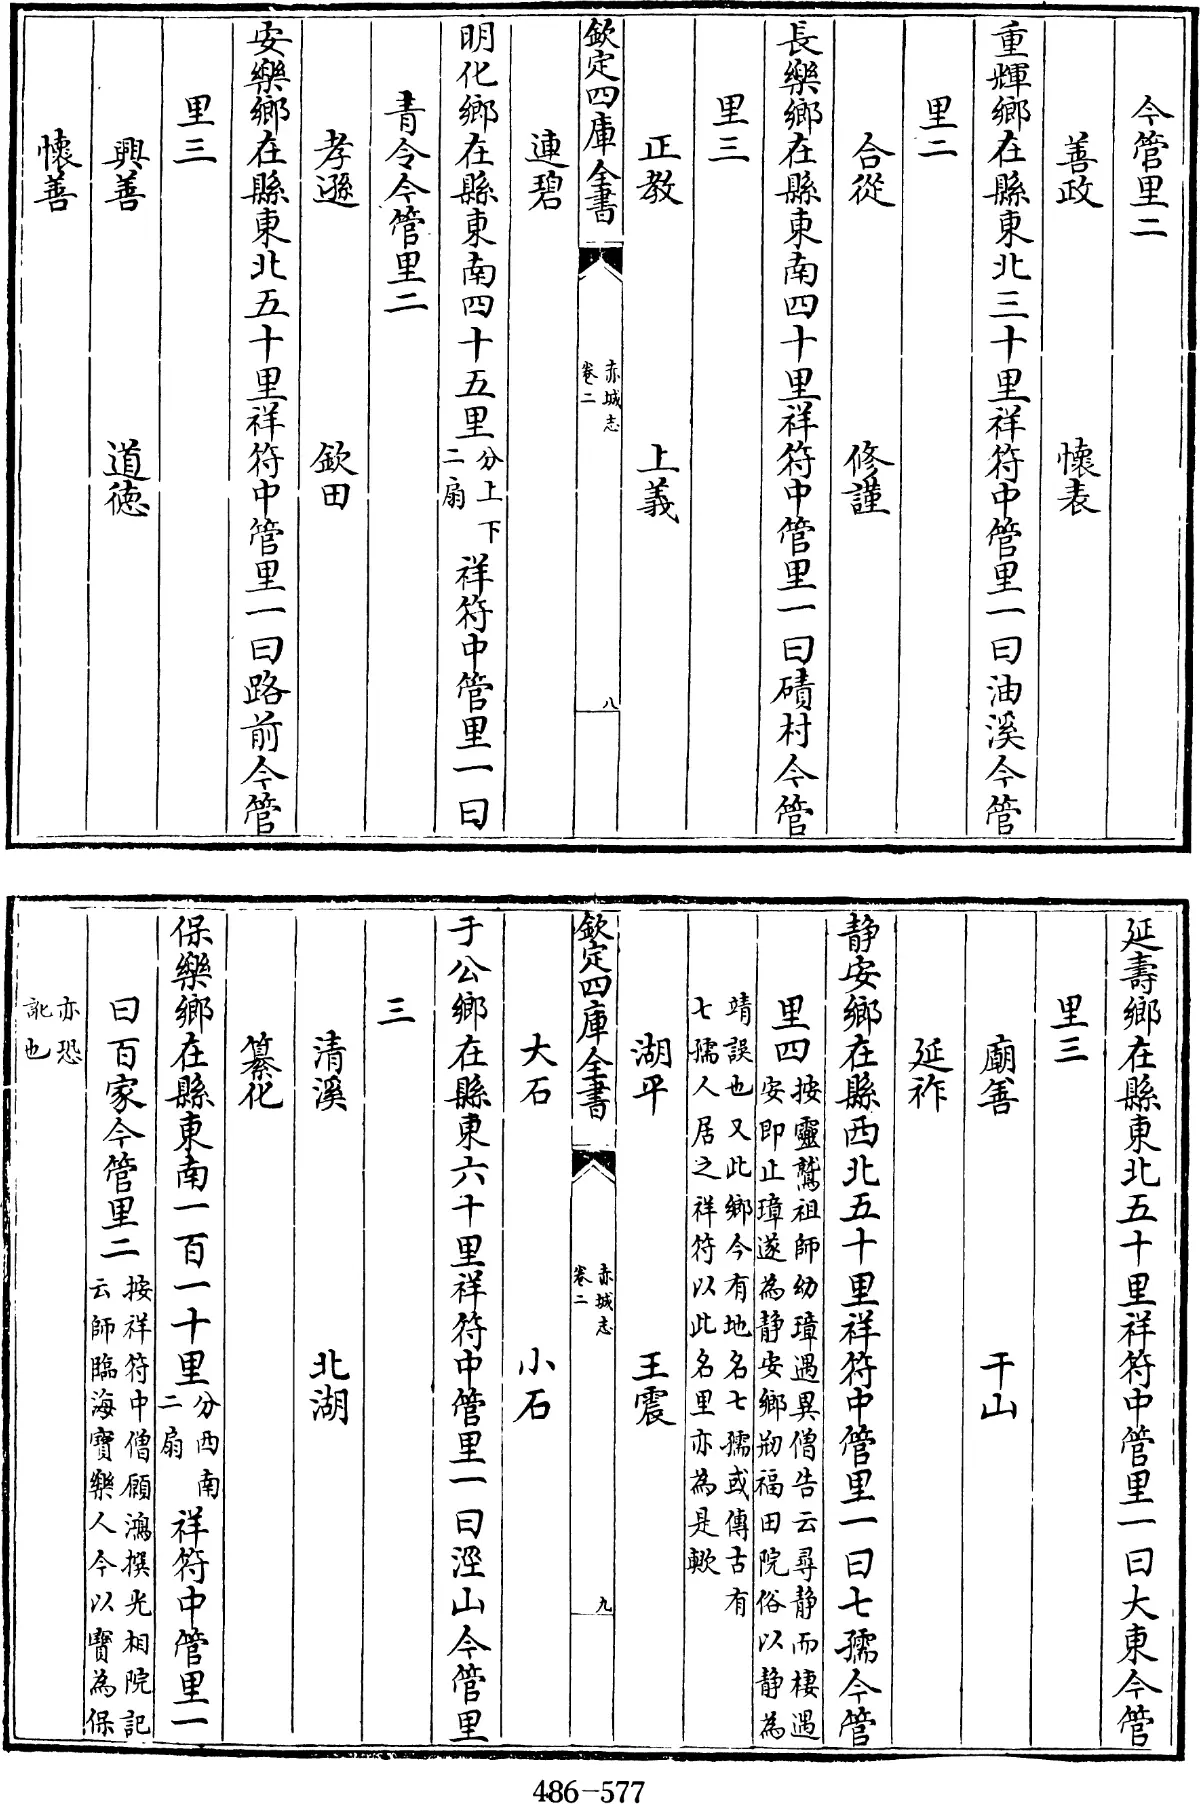 今管里二
善政　懷表
重輝鄉在縣東北三十里祥符中管里一曰油溪今管
里二
合從　修謹
長樂鄉在縣東南四十里祥符中管里一曰磧村今管
里三
正教　上義
欽定四庫全書
赤城志
卷二
八
連碧
明化鄉在縣東南四十五里分上下二扇祥符中管里一曰
青令今管里二
孝遜　欽田
安樂鄉在縣東北五十里祥符中管里一曰路前今管
里三
興善　道德
懷善
延壽鄉在縣東北五十里祥符中管里一曰大東今管
里三
廟善　干山
延祚
靜安鄉在縣西北五十里祥符中管里一曰七孺今管
里四按靈鷲祖師幼璋遇異僧告云尋靜而棲遇
安即止璋遂為靜安鄉剏福田院俗以靜為
靖誤也又此鄉今有地名七孺或傳古有
七孺人居之祥符以此名里亦為是歟
湖平　王震
欽定四庫全書
赤城志
卷二
九
大石　小石
于公鄉在縣東六十里祥符中管里一曰涇山今管里
三
清溪　北湖
纂化
保樂鄉在縣東南一百一十里分西南二扇祥符中管里一
曰百家今管里二按祥符中僧願鴻撰光相院記
云師臨海寶樂人今以寶為保
亦恐
訛也
486-577